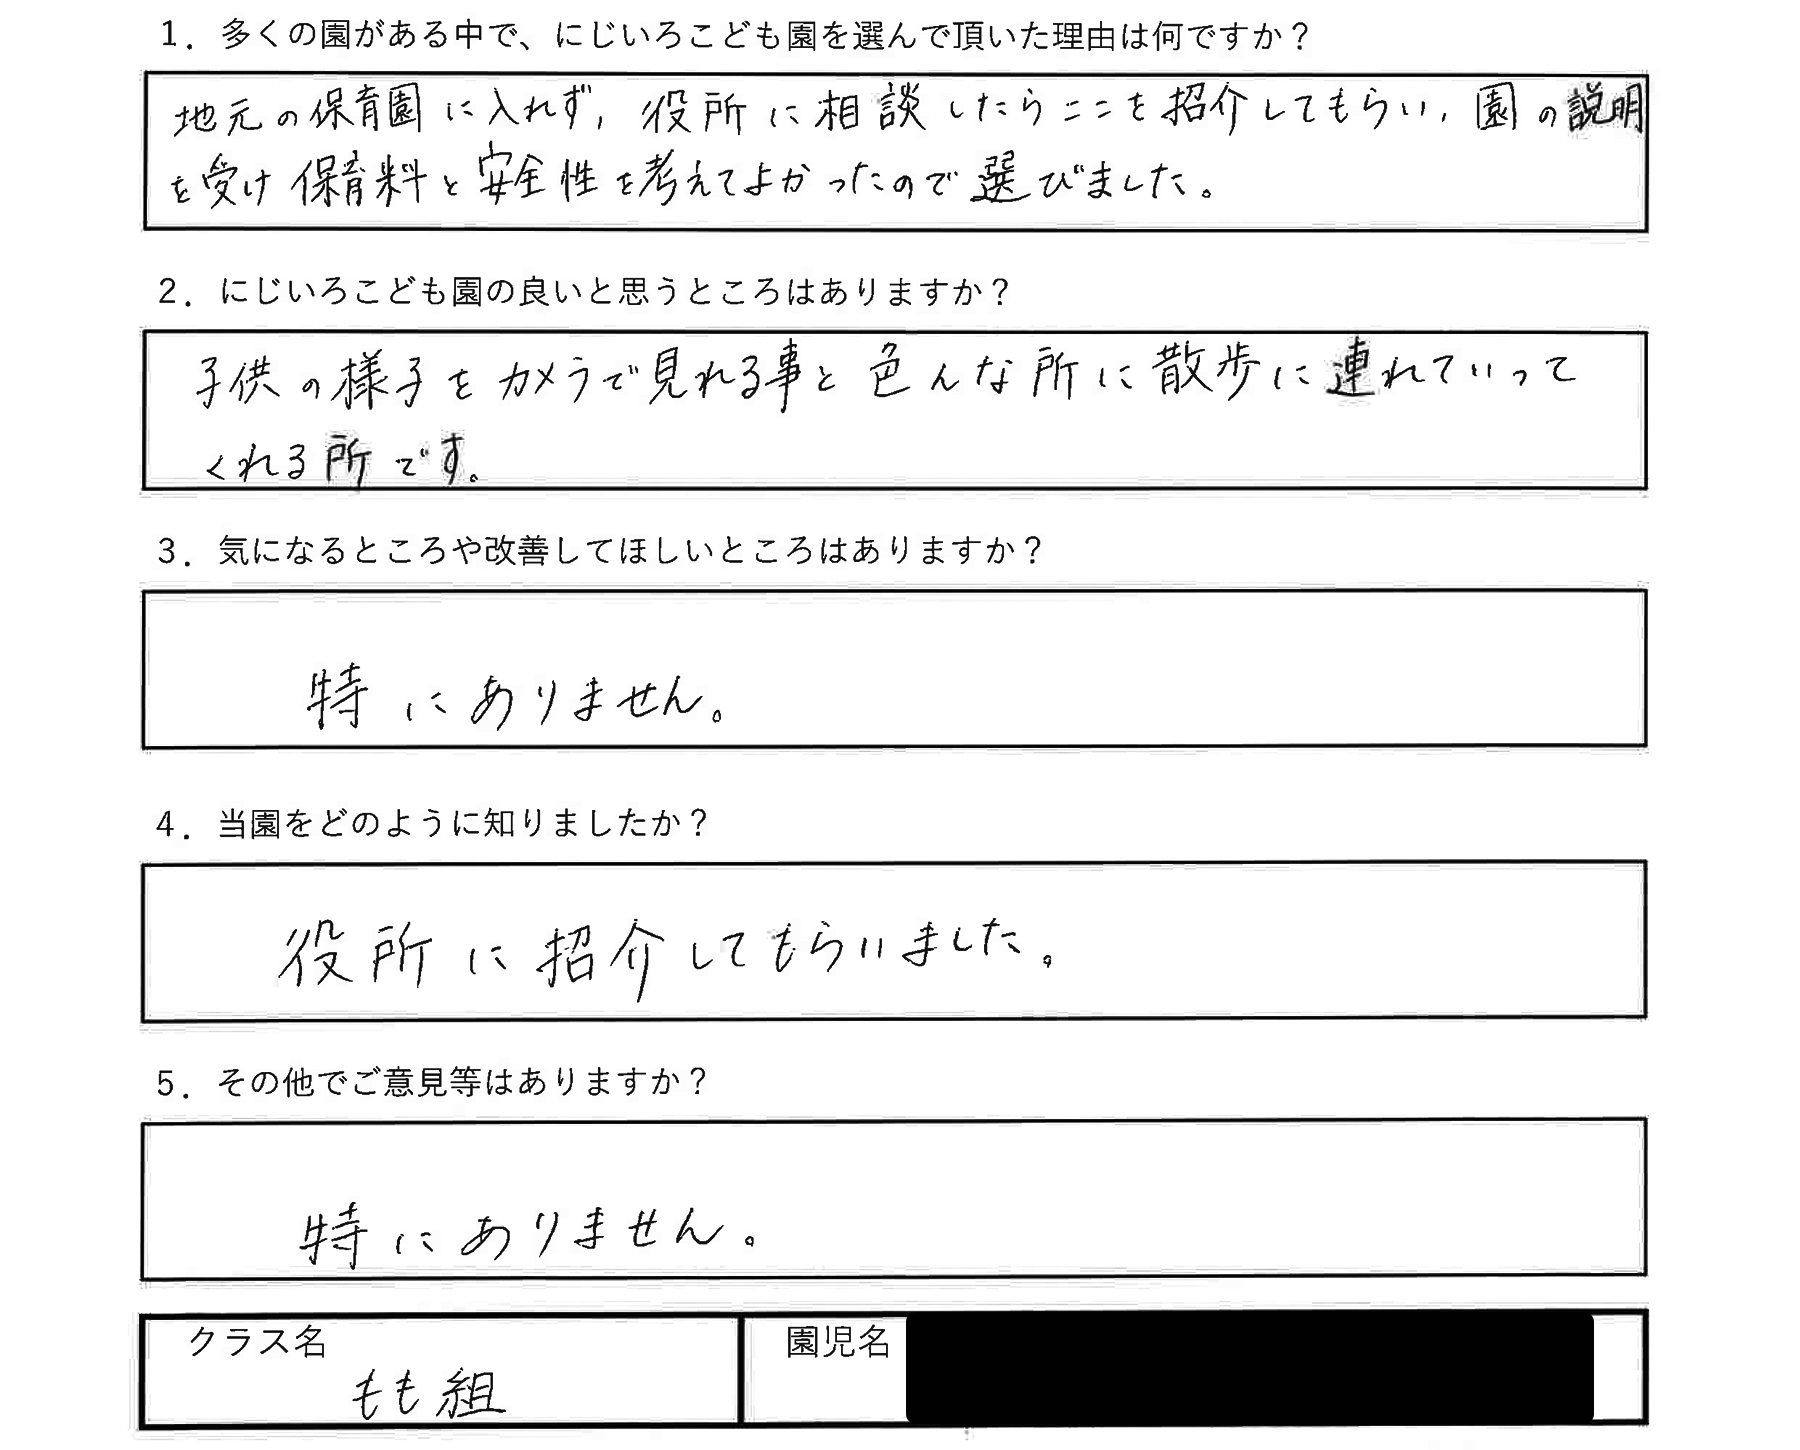 1．多くの園がある中で、にじいろこども園を選んで頂いた理由は何ですか？
地元の保育園に入れず，役所に相談したらここを招介してもらい，園の説明
を受け保育料と安全性を考えてよかったので選びました。
2．にじいろこども園の良いと思うところはありますか？
子供の様子をカメラで見れる事と色んな所に散歩に連れていって
くれる所です。
3．気になるところや改善してほしいところはありますか？
特にありません。
4．当園をどのように知りましたか？
役所に招介してもらいました。
5．その他でご意見等はありますか？
特にありません。
クラス名 園児名
もも組